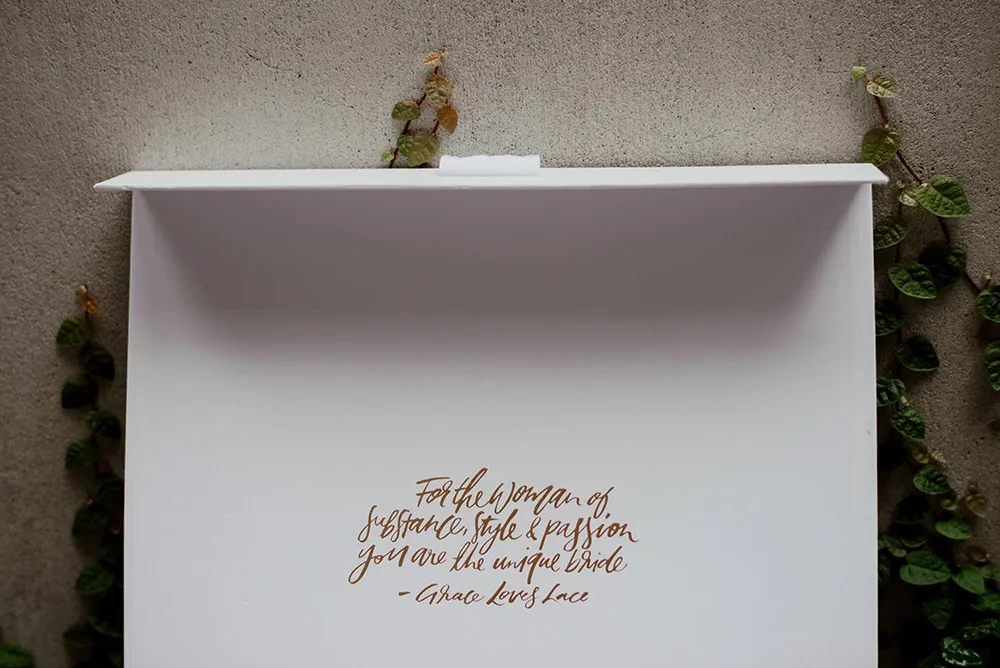 For the Woman of
substance, style & passion
you are the unique bride
- Grace Loves Lace